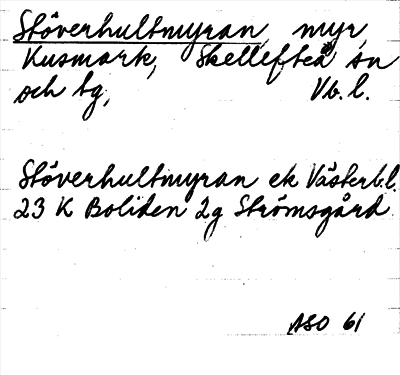 Stöverhultmyran, myr,
Kusmark, Skellefteå sn
och tg, Vb. l.
Stöverhultmyran ek Västerb.l.
23 K Boliden 2g Strömsgård
ASO 61